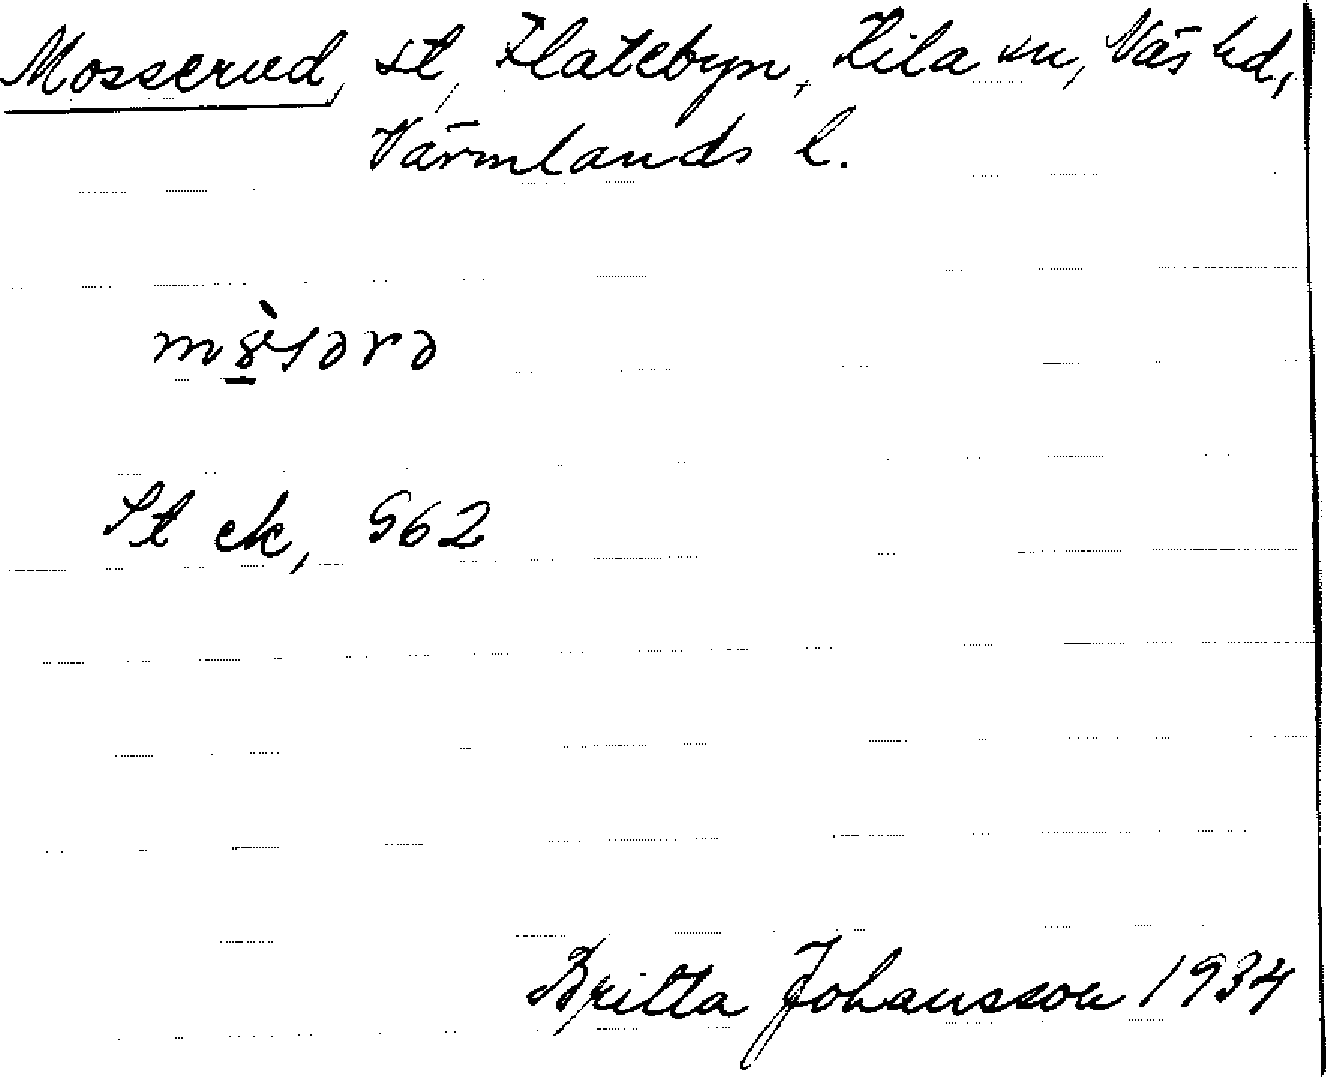 Mosserud, st, Flatebyn, Kila sn, Näs hd,
Värmlands l.
St ek, 962
Britta Johansson 1934